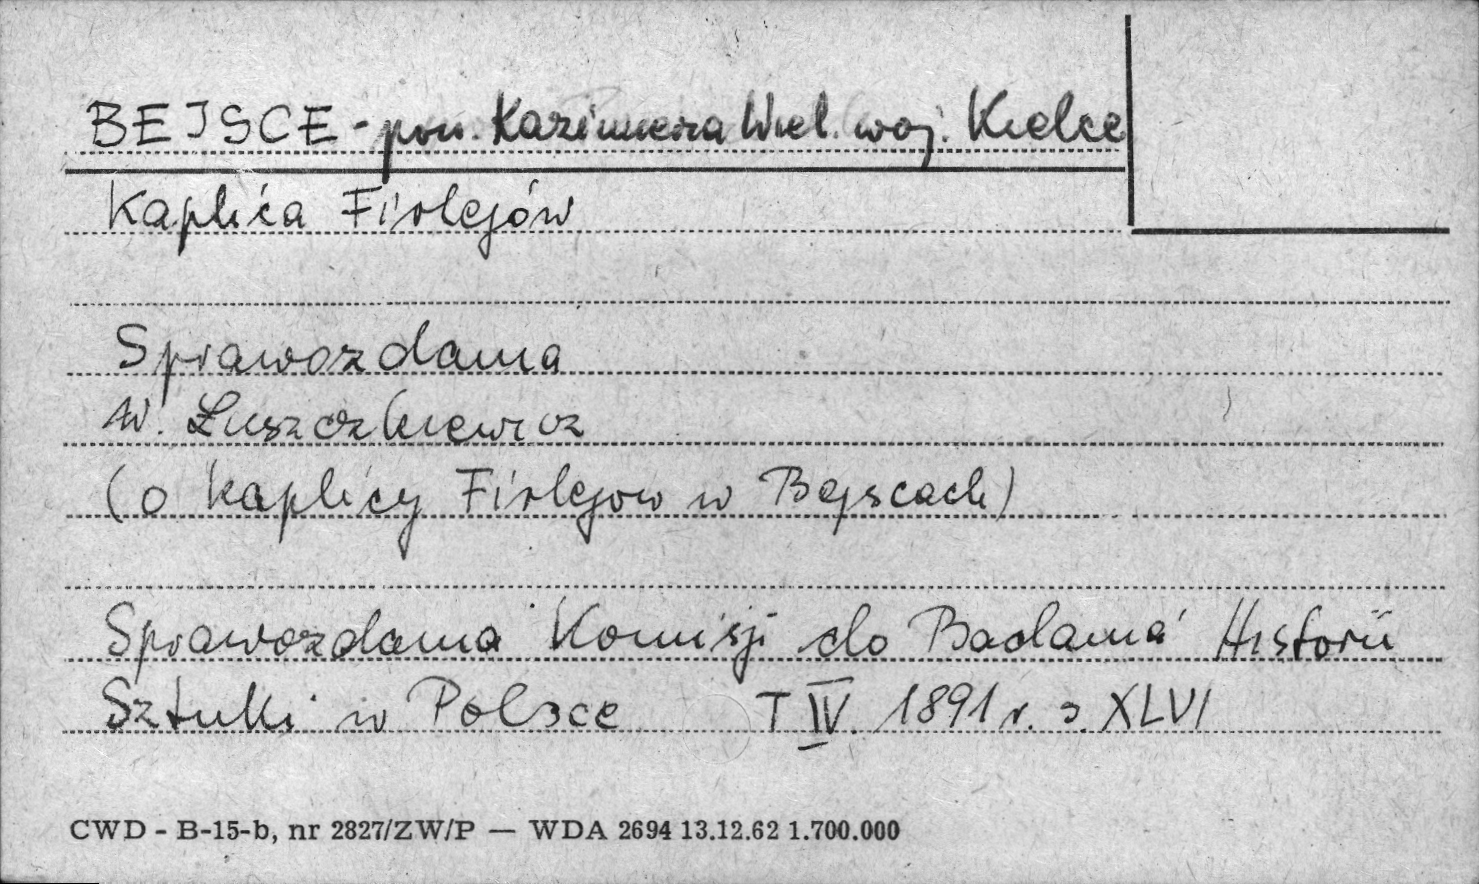 BEJSCE - pow. Kazimierza Wiel. woj. Kielce
Kaplica Firlejów
Sprawozdania
W. Łuszczkiewicz
(o kaplicy Firlejow w Bejscach)
Sprawozdania Komisji do Badania Historii
Sztuki w Polsce T IV. 1891 r. s. XLVI
CWD - B-15-b, nr 2827/ZW/P — WDA 2694 13.12.62 1.700.000